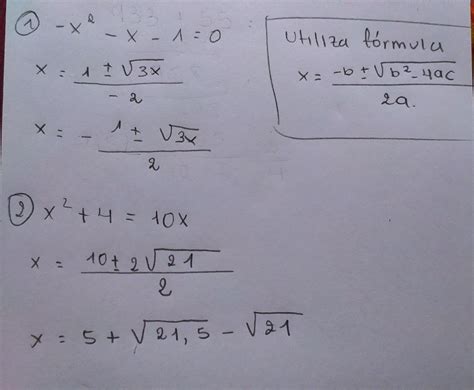 ① -x² - x - 1 = 0
x = (1 ± √3x) / -2
x = - (1 ± √3x) / 2
Utiliza fórmula
x = (-b ± √b² - 4ac) / 2a.
② x² + 4 = 10x
x = (10 ± 2√21) / 2
x = 5 + √21, 5 - √21